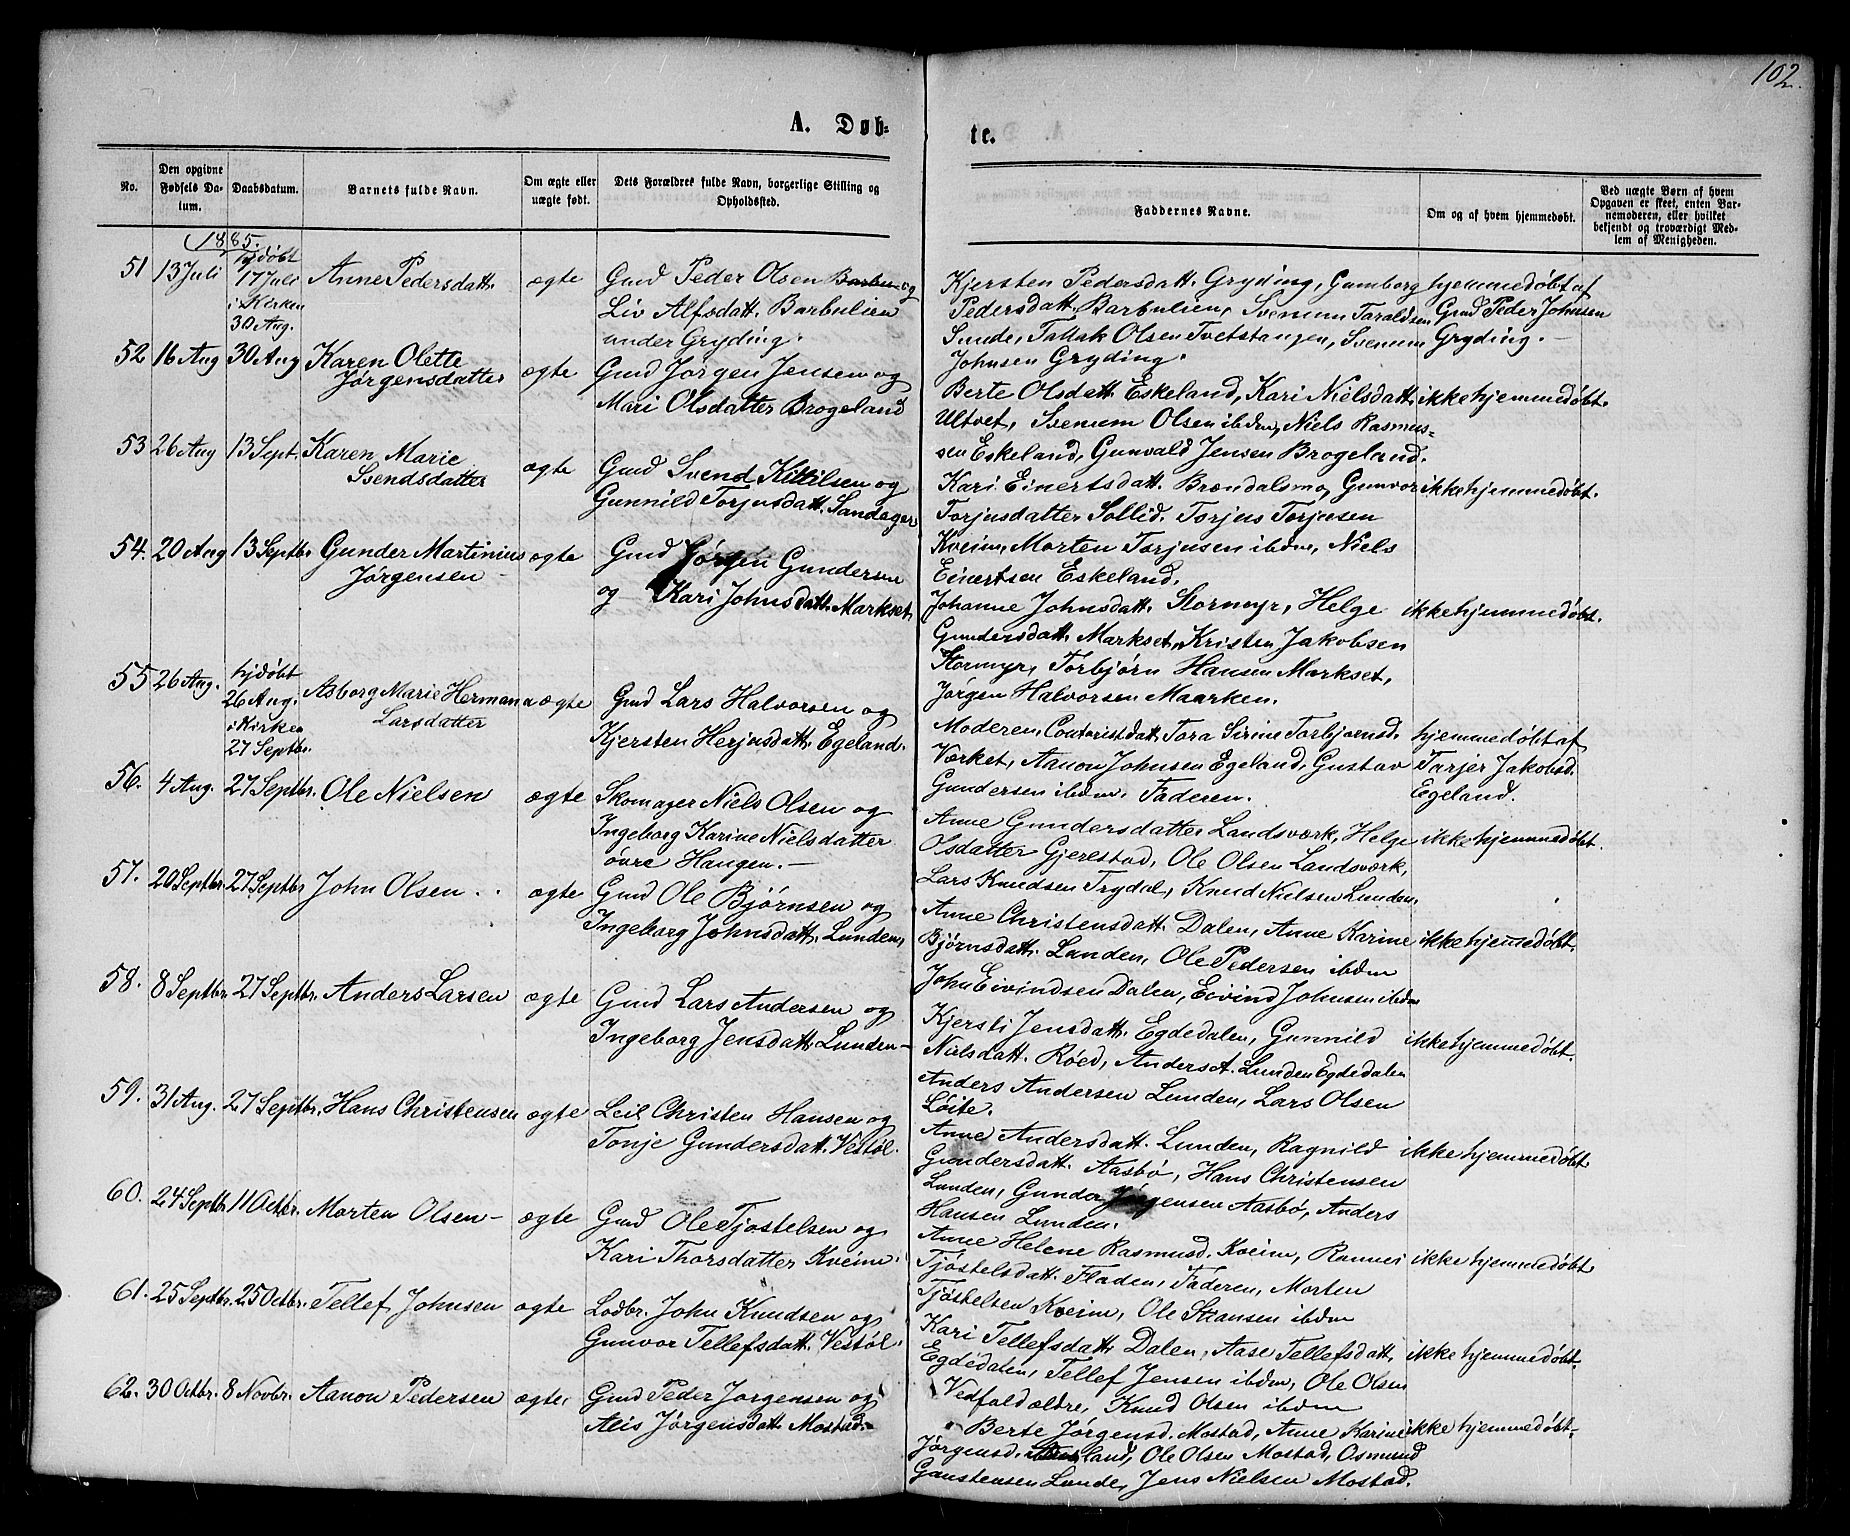 102.
A. Døb-
te.
No.
Den opgivne Fødsels Da-tum.
Daabsdatum.
Barnets fulde Navn.
Om ægte eller uægte født.
Dets Forældres fulde Navn, borgerlige Stilling og Opholdssted.
Faddernes Navne.
Om og af hvem hjemmedøbt.
Ved uægte Børn af hvem Opgaven er skeet, enten Bar-nemoderen, eller hvilket bekjendt og troværdigt Med-lem af Menigheden.
1885.
51 13 Juli hjdøbt 17 Juli i Kirken 30 Aug. Anne Pedersdatt. ægte
Gmd Peder Olsen og
Liv Alfsdatt. Barbulien
under Gryding.
Kjersten Pedersdatt. Gryding, Gunborg
Pedersdatt. Barbulien, Svenum Taraldsen
Sunde, Tallak Olsen Tvetstangen, Svenum
Johnsen Gryding.
hjemmedøbt af
Gmd Peder Johnsen
Gryding.
52 16 Aug 30 Aug Karen Olette
Jørgensdatter ægte
Gmd Jørgen Jensen og
Mari Olsdatter Brogeland
Berte Olsdatt. Eskeland, Kari Nielsdatt.
Ultvet, Svenum Olsen ibdm, Niels Rasmus-
sen Eskeland, Gunvald Jensen Brogeland.
ikke hjemmedøbt.
53 26 Aug 13 Sept. Karen Marie
Svendsdatter ægte
Gmd Svend Kittilsen og
Gunnild Torjusdatt. Sandager
Kari Einertsdatt. Brændalsmo, Gunvor
Torjusdatter Sollid. Torjus Torjusen
Kveim, Morten Torjusen ibdm, Niels
Einertsen Eskeland.
ikke hjemmedøbt.
54. 20 Aug 13 Septbr Gunder Martinius
Jørgensen ægte
Gmd Jørgen Gundersen
og Kari Johnsdatt. Markset
Johanne Johnsdatt. Stormyr, Helge
Gundersdatt. Markset, Kristen Jakobsen
Stormyr, Torbjørn Hansen Markset,
Jørgen Halvorsen Maarken.
ikke hjemmedøbt.
55 26 Aug. hjdøbt 26 Aug. i Kirken 27 Septbr. Asborg Marie Hermana
Larsdatter ægte
Gmd Lars Halvorsen og
Kjersten Herjusdatt. Egeland.
Moderen, Contoristdatt. Tora Sirine Torbjørnsd.
Værket, Aanon Johnsen Egeland, Gustav
Gundersen ibdm. Faderen.
hjemmedøbt af
Tarjer Jakobsd.
Egeland.
56. 4 Aug. 27 Septbr. Ole Nielsen ægte
Skomager Niels Olsen og
Ingeborg Karine Nielsdatter
øvre Haugen.
Anne Gundersdatter Landsværk, Helge
Olsdatter Gjerestad, Ole Olsen Landsværk,
Lars Knudsen Trydal, Knud Nielsen Lunden.
ikke hjemmedøbt.
57. 20 Septbr 27 Septbr John Olsen. ægte
Gmd Ole Bjørnsen og
Ingeborg Johnsdatt. Lunden,
Anne Christensdatt. Dalen, Anne Karine
Bjørnsdatt. Lunden, Ole Pedersen ibdm
John Eivindsen Dalen, Eivind Johnsen ibdm
ikke hjemmedøbt.
58. 8 Septbr 27 Septbr. Anders Larsen ægte
Gmd Lars Andersen og
Ingeborg Jensdatt. Lunden
Kjersti Jensdatt. Egdedalen, Gunnild
Nielsdatt. Røed, Anders A. Lunden Egdedalen
Anders Andersen Lunden, Lars Olsen
Løite.
ikke hjemmedøbt.
59. 31 Aug. 27 Septbr. Hans Christensen ægte
Leil Christen Hansen og
Tonje Gundersdatt. Vestøl.
Anne Andersdatt. Lunden, Ragnild
Gundersdatt. Aasbø, Hans Christensen
Lunden, Gunder Jørgensen Aasbø, Anders
Hansen Lunden.
ikke hjemmedøbt
60. 24 Septbr 11 Octbr. Morten Olsen ægte
Gmd Ole Tjøstelsen og
Kari Thorsdatter Kveim.
Anne Helene Rasmusd. Kveim, Rannei
Tjøstelsdatt. Fladen, Faderen, Morten
Tjøstelsen Kveim, Ole Hansen ibdm
ikke hjemmedøbt
61. 25 Septbr. 25 Octbr. Tellef Johnsen ægte
Lodbr. John Knudsen og
Gunvor Tellefsdatt. Vestøl.
Kari Tellefsdatt. Dalen, Aase Tellefsdatt.
Egdedalen, Tellef Jensen ibdm, Ole Olsen
Vedfaldældre, Knud Olsen ibdm
ikke hjemmedøbt.
62. 30 Octbr. 8 Novbr. Aanon Pedersen ægte,
Gmd Peder Jørgensen og
Alis Jørgensdatt. Mostad.
Berte Jørgensd. Mostad, Anne Karine
Jørgensd. Ole Olsen Mostad, Osmund
Gunstensen Lunde, Jens Nielsen Mostad.
ikke hjemmedøbt.